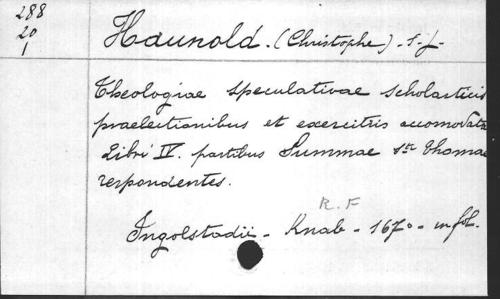 288
20
1
Haunold. (Christophe) - S. J.
Theologiae speculativae scholasticis
praelectionibus et exercitiis accomodatae
Libri IV. partibus Summae Sti Thomae
respondentes.
R. F
Ingolstadii - Knab - 1670 - in fol.